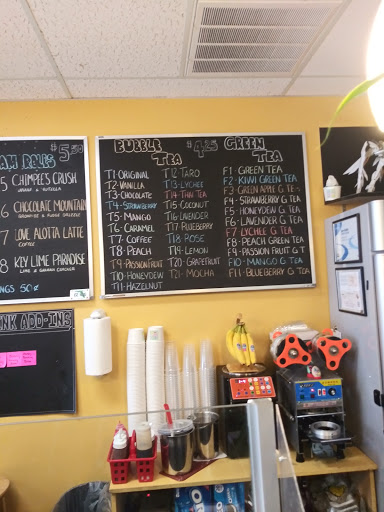 $5.50
AM ROLLS
5 CHIMPEE'S CRUSH
6 CHOCOLATE MOUNTAIN
7 LOVE ALOTTA LATTE
COFFEE
8 KEY LIME PARADISE
LIME & GRAHAM CRACKER
NGS 50¢
NK ADD-INS
BUBBLE TEA
T1-ORIGINAL
T2-VANILLA
T3-CHOCOLATE
T4-STRAWBERRY
T5-MANGO
T6-CARAMEL
T7-COFFEE
T8-PEACH
T9-PASSIONFRUIT
T10-HONEYDEW
T11-HAZELNUT
T12-TARO
T13-LYCHEE
T14-THAI TEA
T15-COCONUT
T16-LAVENDER
T17-BLUEBERRY
T18 ROSE
T19-LEMON
T20-GRAPEFRUIT
T21-MOCHA
GREEN TEA
F1-GREEN TEA
F2-KIWI GREEN TEA
F3-GREEN APPLE G TEA
F4-STRAWBERRY G TEA
F5-HONEYDEW G TEA
F6-LAVENDER G TEA
F7 LYCHEE G TEA
F8-PEACH GREEN TEA
F9-PASSION FRUIT G T
F10-MANGO G TEA
F11-BLUEBERRY G TEA